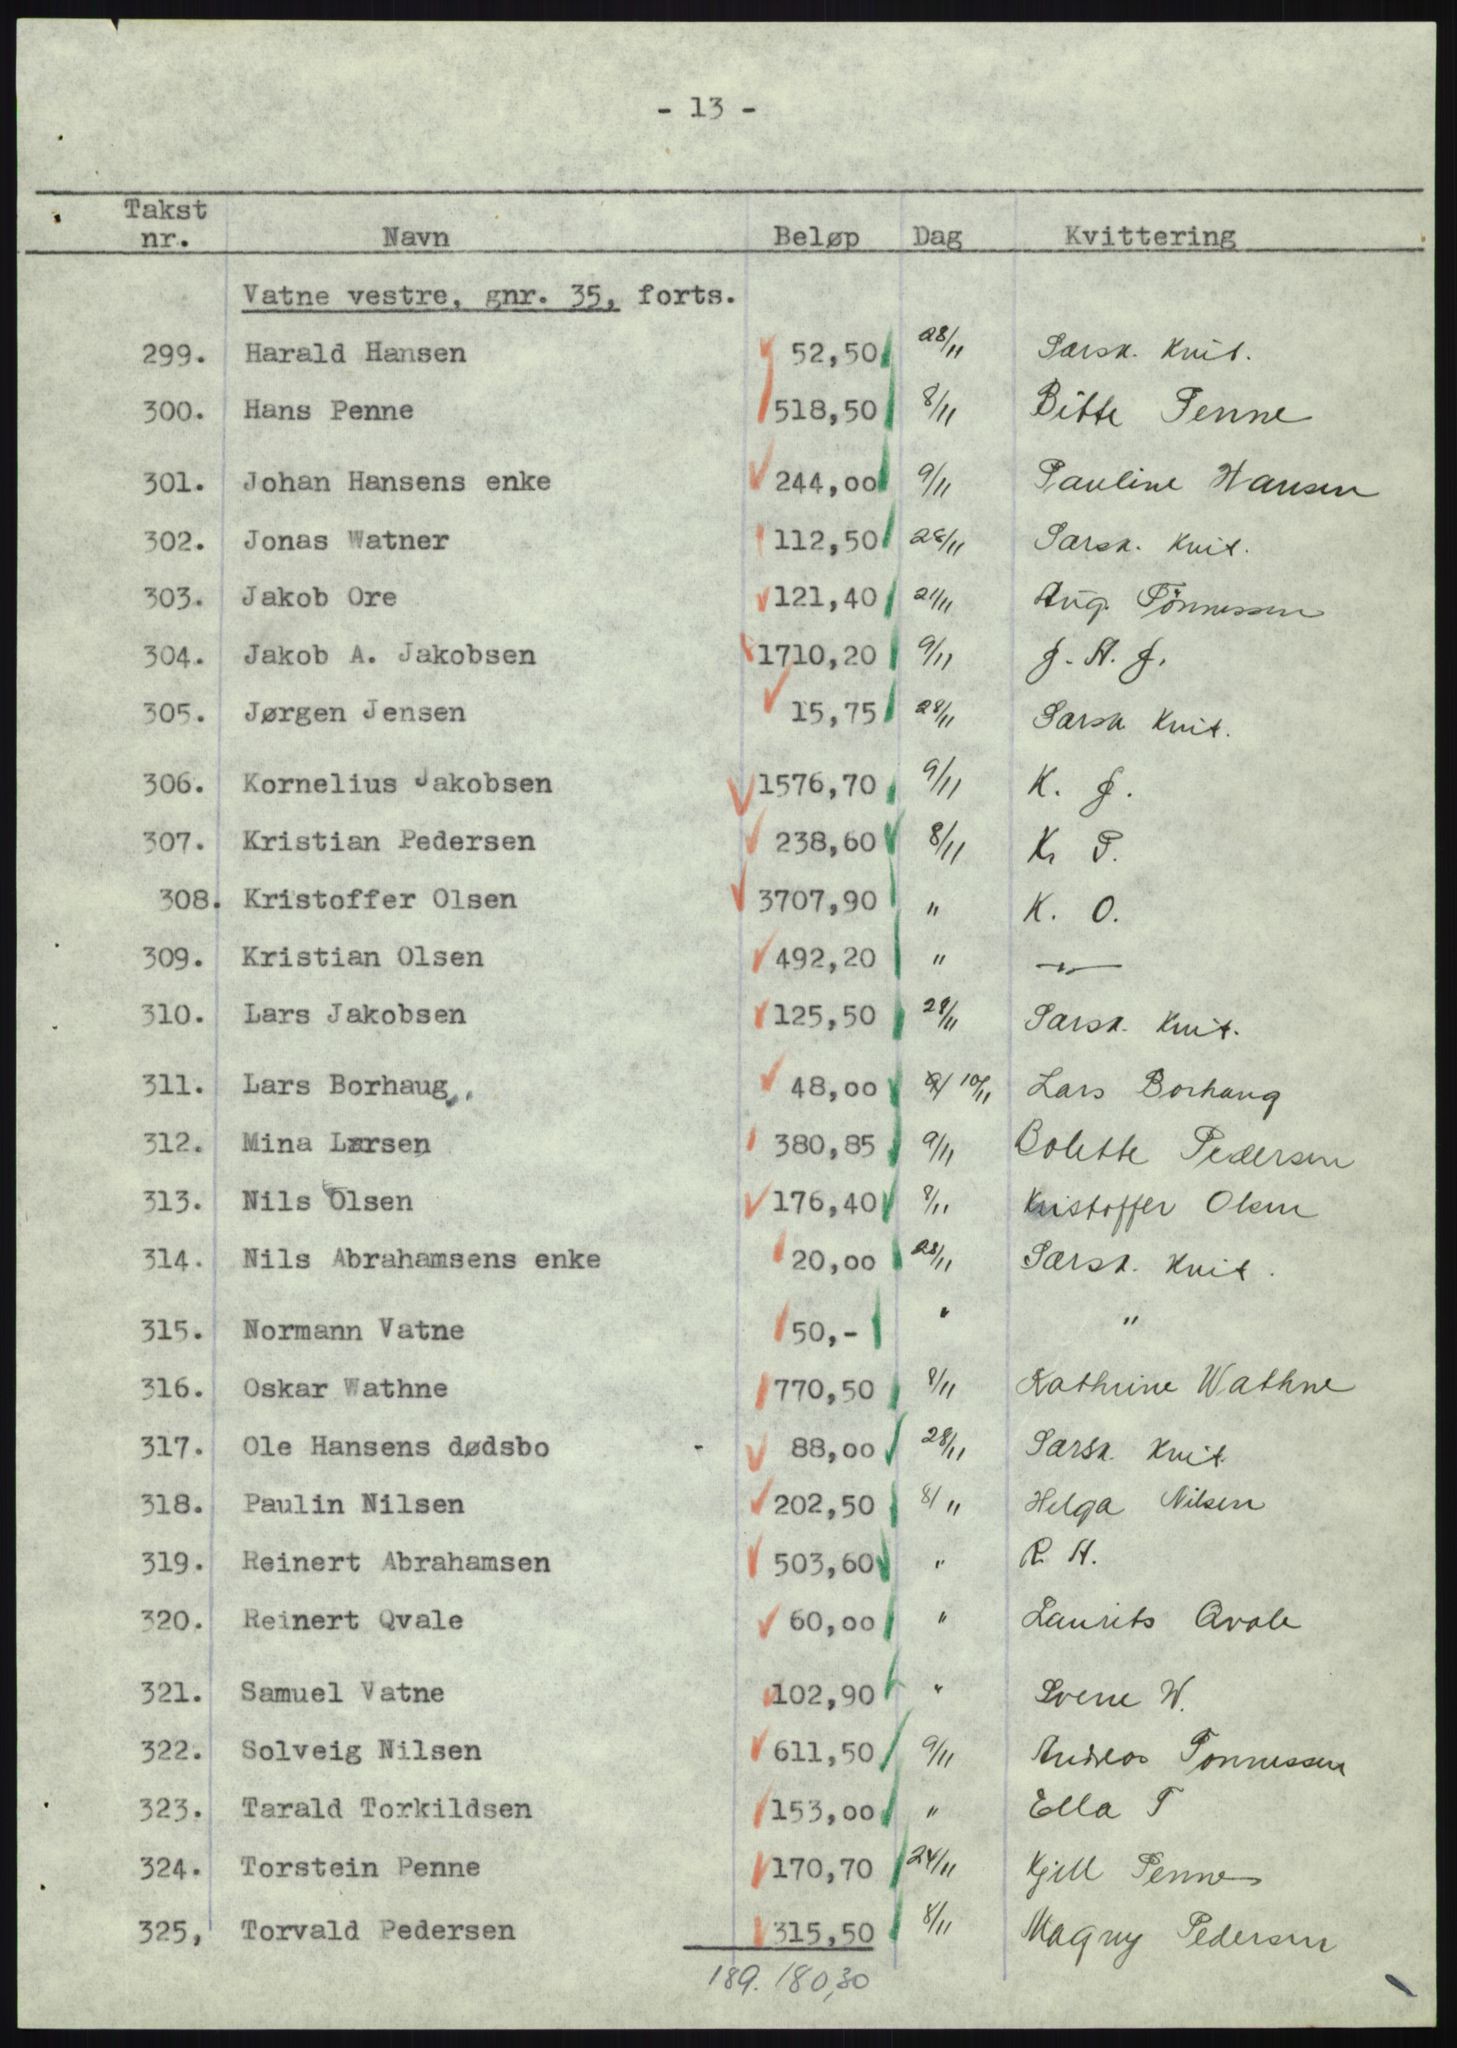 - 13 -
Takst nr. Navn Beløp Dag Kvittering
Vatne vestre, gnr. 35, forts.
299. Harald Hansen 52,50 28/11 Særsk. Kvit.
300. Hans Penne 518,50 8/11 Bitte Penne
301. Johan Hansens enke 244,00 9/11 Pauline Hansen
302. Jonas Watner 112,50 28/11 Særsk. Kvit.
303. Jakob Ore 121,40 21/11 Aug. Tönnessen
304. Jakob A. Jakobsen 1710,20 9/11 J. A. J.
305. Jørgen Jensen 15,75 28/11 Særsk Kvit.
306. Kornelius Jakobsen 1576,70 9/11 K. J.
307. Kristian Pedersen 238,60 8/11 K. P.
308. Kristoffer Olsen 3707,90 " K. O.
309. Kristian Olsen 492,20 " —"—
310. Lars Jakobsen 125,50 28/11 Særsk. Kvit.
311. Lars Borhaug 48,00 10/11 Lars Borhaug
312. Mina Larsen 380,85 9/11 Bolette Pedersen
313. Nils Olsen 176,40 8/11 Kristoffer Olsen
314. Nils Abrahamsens enke 20,00 28/11 Særsk. Kvit.
315. Normann Vatne 50,- " "
316. Oskar Wathne 770,50 8/11 Kathrine Wathne
317. Ole Hansens dødsbo 88,00 28/11 Særsk. Kvit
318. Paulin Nilsen 202,50 8/11 Helga Nilsen
319. Reinert Abrahamsen 503,60 " R. A.
320. Reinert Qvale 60,00 " Laurits Qvale
321. Samuel Vatne 102,90 " W.
322. Solveig Nilsen 611,50 9/11 Andreas Tønnessen
323. Tarald Torkildsen 153,00 " Ella T
324. Torstein Penne 170,70 24/11 Kjell Penne
325, Torvald Pedersen 315,50 8/11 Magny Pedersen
189.180,30